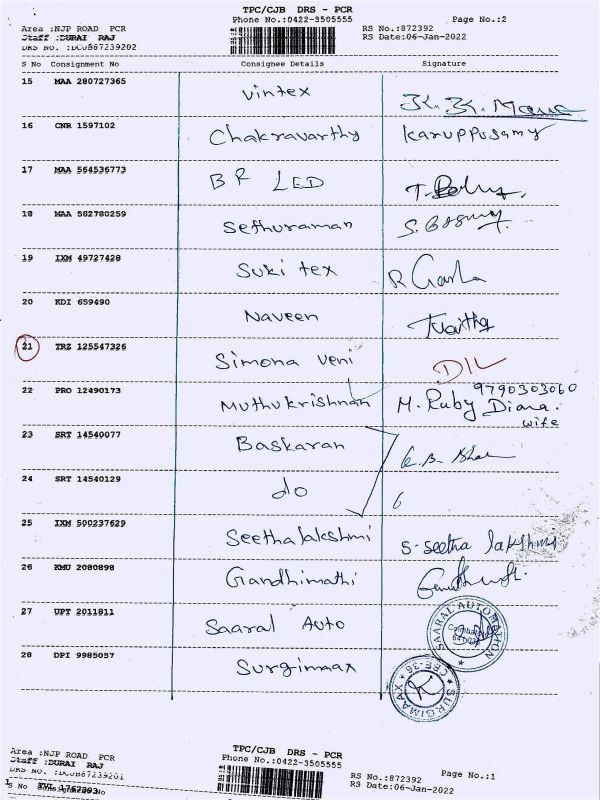 TPC/CJB DRS - PCR
Phone No.:0422-3505555 Page No.:2
Area :NJP ROAD PCR RS No.:872392
Staff :DURAI RAJ RS Date:06-Jan-2022
DRS No. :DCJB67239202
S No Consignment No Consignee Details Signature
15 MAA 280727365 Vintex
16 CNR 1597102 Chakravarthy Karuppusamy
17 MAA 564536773 BR LED
18 MAA 562780259 Sethuraman
19 IXM 49727428 Suki tex
20 KDI 659490 Naveen
21 TRZ 125547326 Simona veni DIL
22 PRO 12490173 Muthukrishnan 9790303060
M. Ruby Diana.
wife
23 SRT 14540077 Baskaran
24 SRT 14540129 do
25 IXM 500237629 Seethalakshmi S-seetha lakshmi
26 KMU 2080898 Gandhimathi
27 UPT 2011811 Saaral Auto SAARAL AUTOMATION
28 DPI 9985057 Surgimaax SURGIMAAX CBE-36
TPC/CJB DRS - PCR
Phone No.:0422-3505555 Page No.:1
Area :NJP ROAD PCR RS No.:872392
Staff :DURAI RAJ RS Date:06-Jan-2022
DRS No. :DCJB67239201
S No